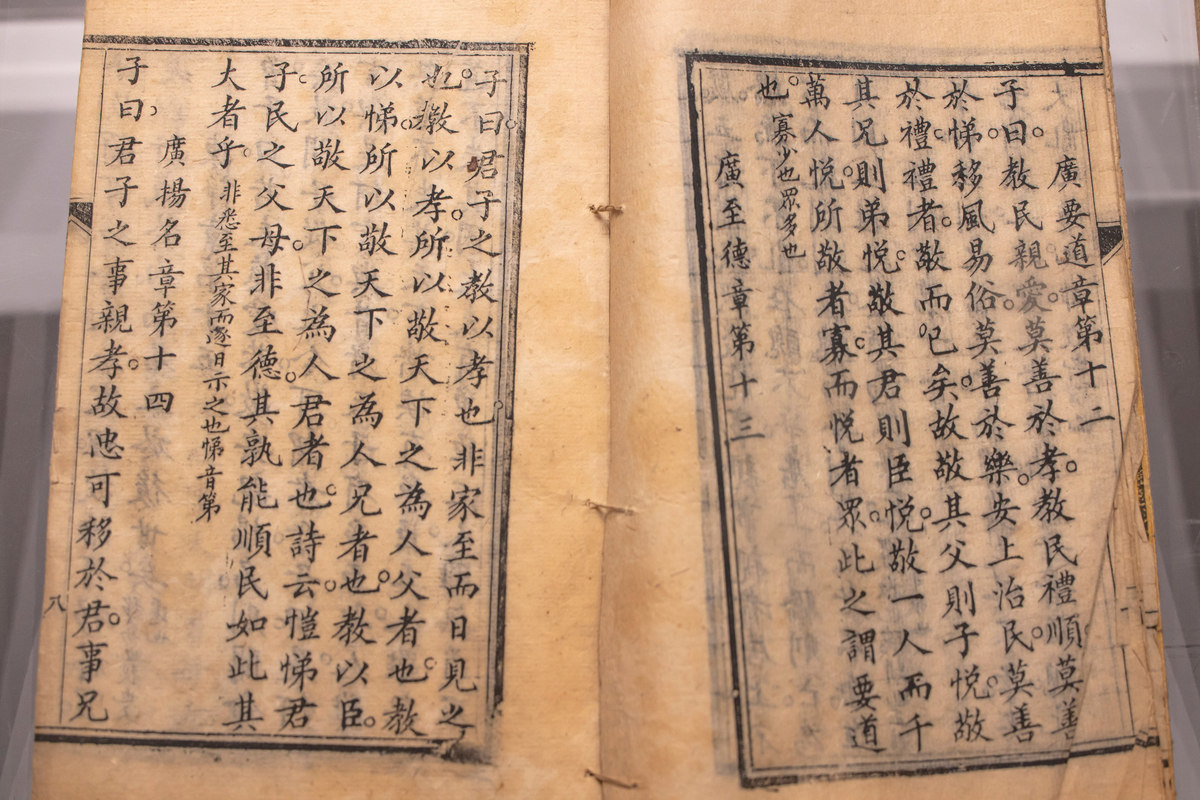 廣要道章第十二
子曰。教民親愛。莫善於孝。教民禮順。莫善
於悌。移風易俗。莫善於樂。安上治民。莫善
於禮。禮者。敬而已矣。故敬其父則子悅。敬
其兄則弟悅。敬其君則臣悅。敬一人而千
萬人悅。所敬者寡。而悅者眾。此之謂要道
也。寡少也眾多也
廣至德章第十三
子曰。君子之教以孝也非家至而日見之
也。教以孝。所以敬天下之為人父者也。教
以悌。所以敬天下之為人兄者也。教以臣。
所以敬天下之為人君者也。詩云。愷悌君
子。民之父母。非至德。其孰能順民如此其
大者乎。非悉至其家而逐日示之也悌音第
廣揚名章第十四
子曰。君子之事親孝。故忠可移於君。事兄
八